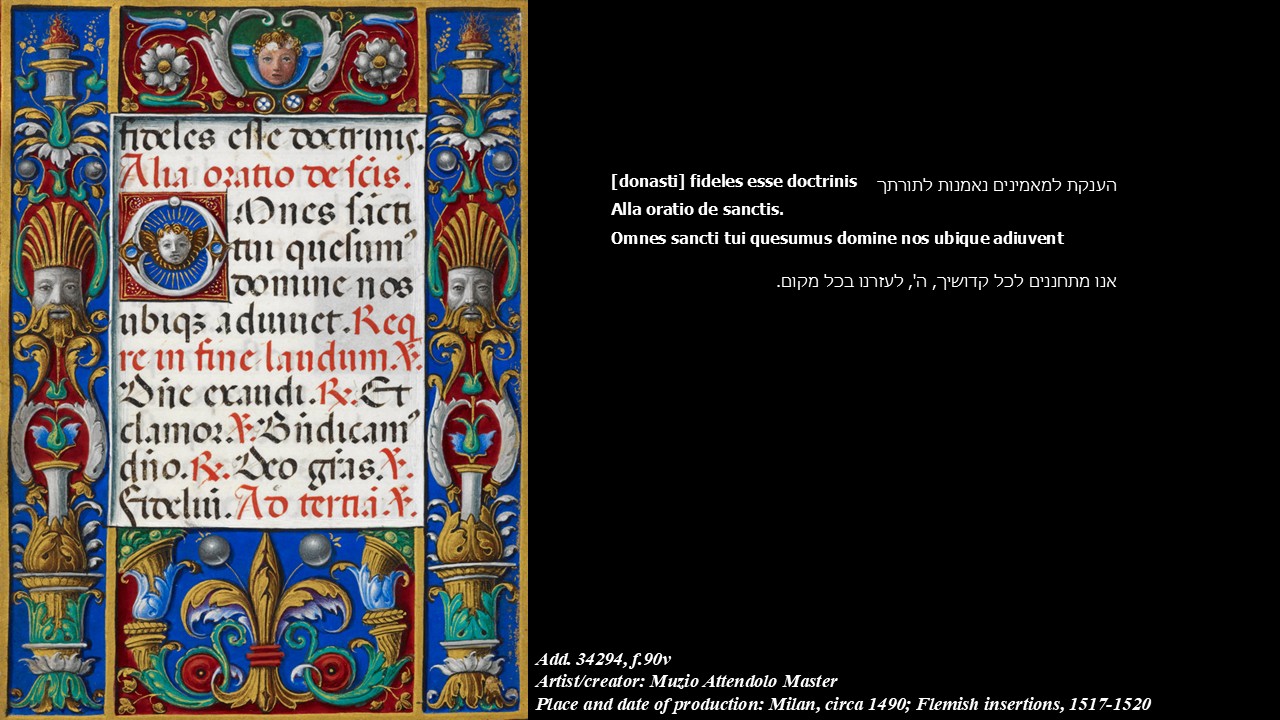 fideles esse doctrinis.
Alia oratio de scis.
Omnes sācti
tui quesum⁹
domine nos
ubiqꝫ adiuuēt. Req̄
re in fine laudum. ℣.
Dn̄e exaudi. ℟. Et
clamor. ℣. Bn̄dicam⁹
dn̄o. ℟. Deo gr̄as. ℣.
Fideliū. Ad tertiā ℣.
[donasti] fideles esse doctrinis הענקת למאמינים נאמנות לתורתך
Alla oratio de sanctis.
Omnes sancti tui quesumus domine nos ubique adiuvent
אנו מתחננים לכל קדושיך, ה', לעזרנו בכל מקום.
Add. 34294, f.90v
Artist/creator: Muzio Attendolo Master
Place and date of production: Milan, circa 1490; Flemish insertions, 1517-1520